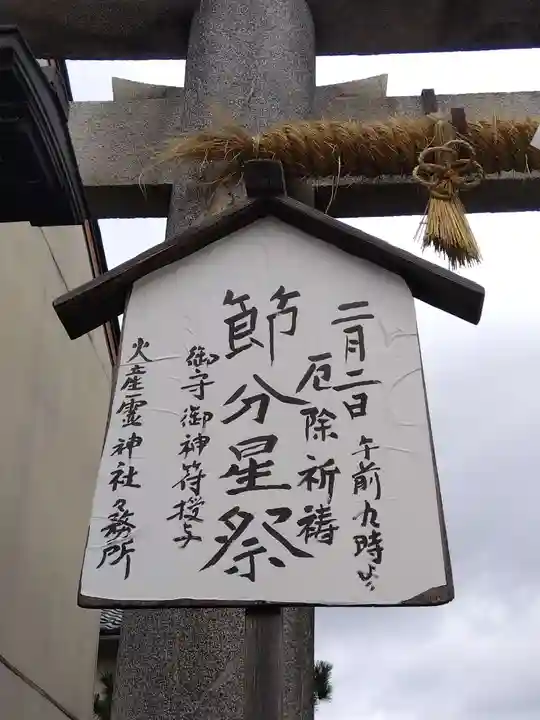 二月二日 午前九時より
厄除祈祷
節分星祭
御守御神符授与
火産霊神社々務所